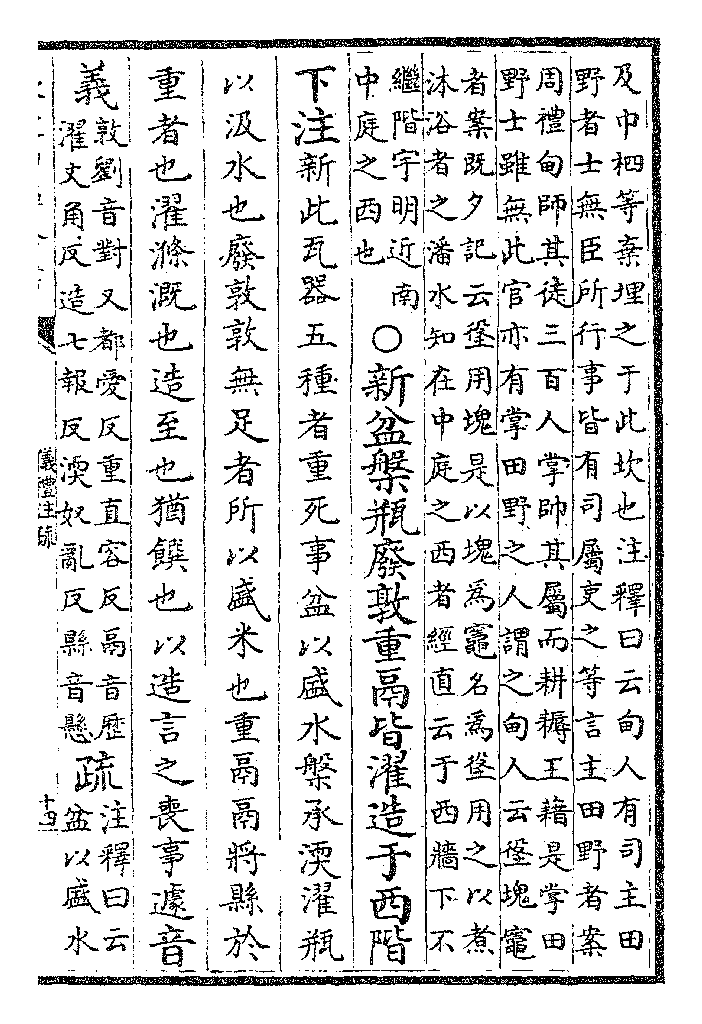 及巾柶等棄埋之于此坎也注釋曰云甸人有司主田
野者士無臣所行事皆有司屬吏之等言主田野者案
周禮甸師其徒三百人掌帥其屬而耕耨王藉是掌田
野士雖無此官亦有掌田野之人謂之甸人云垼塊竈
者案既夕記云垼用塊是以塊爲竈名爲垼用之以煮
沐浴者之潘水知在中庭之西者經直云于西牆下不
繼階宇明近南
中庭之西也
○新盆槃瓶廢敦重鬲皆濯造于西階
下注新此瓦器五種者重死事盆以盛水槃承渜濯瓶
以汲水也廢敦敦無足者所以盛米也重鬲鬲將縣於
重者也濯滌溉也造至也猶饌也以造言之喪事遽音
義
敦劉音對又都愛反重直容反鬲音歷
濯丈角反造七報反渜奴亂反縣音懸
疏
注釋曰云
盆以盛水
儀禮注疏
十四